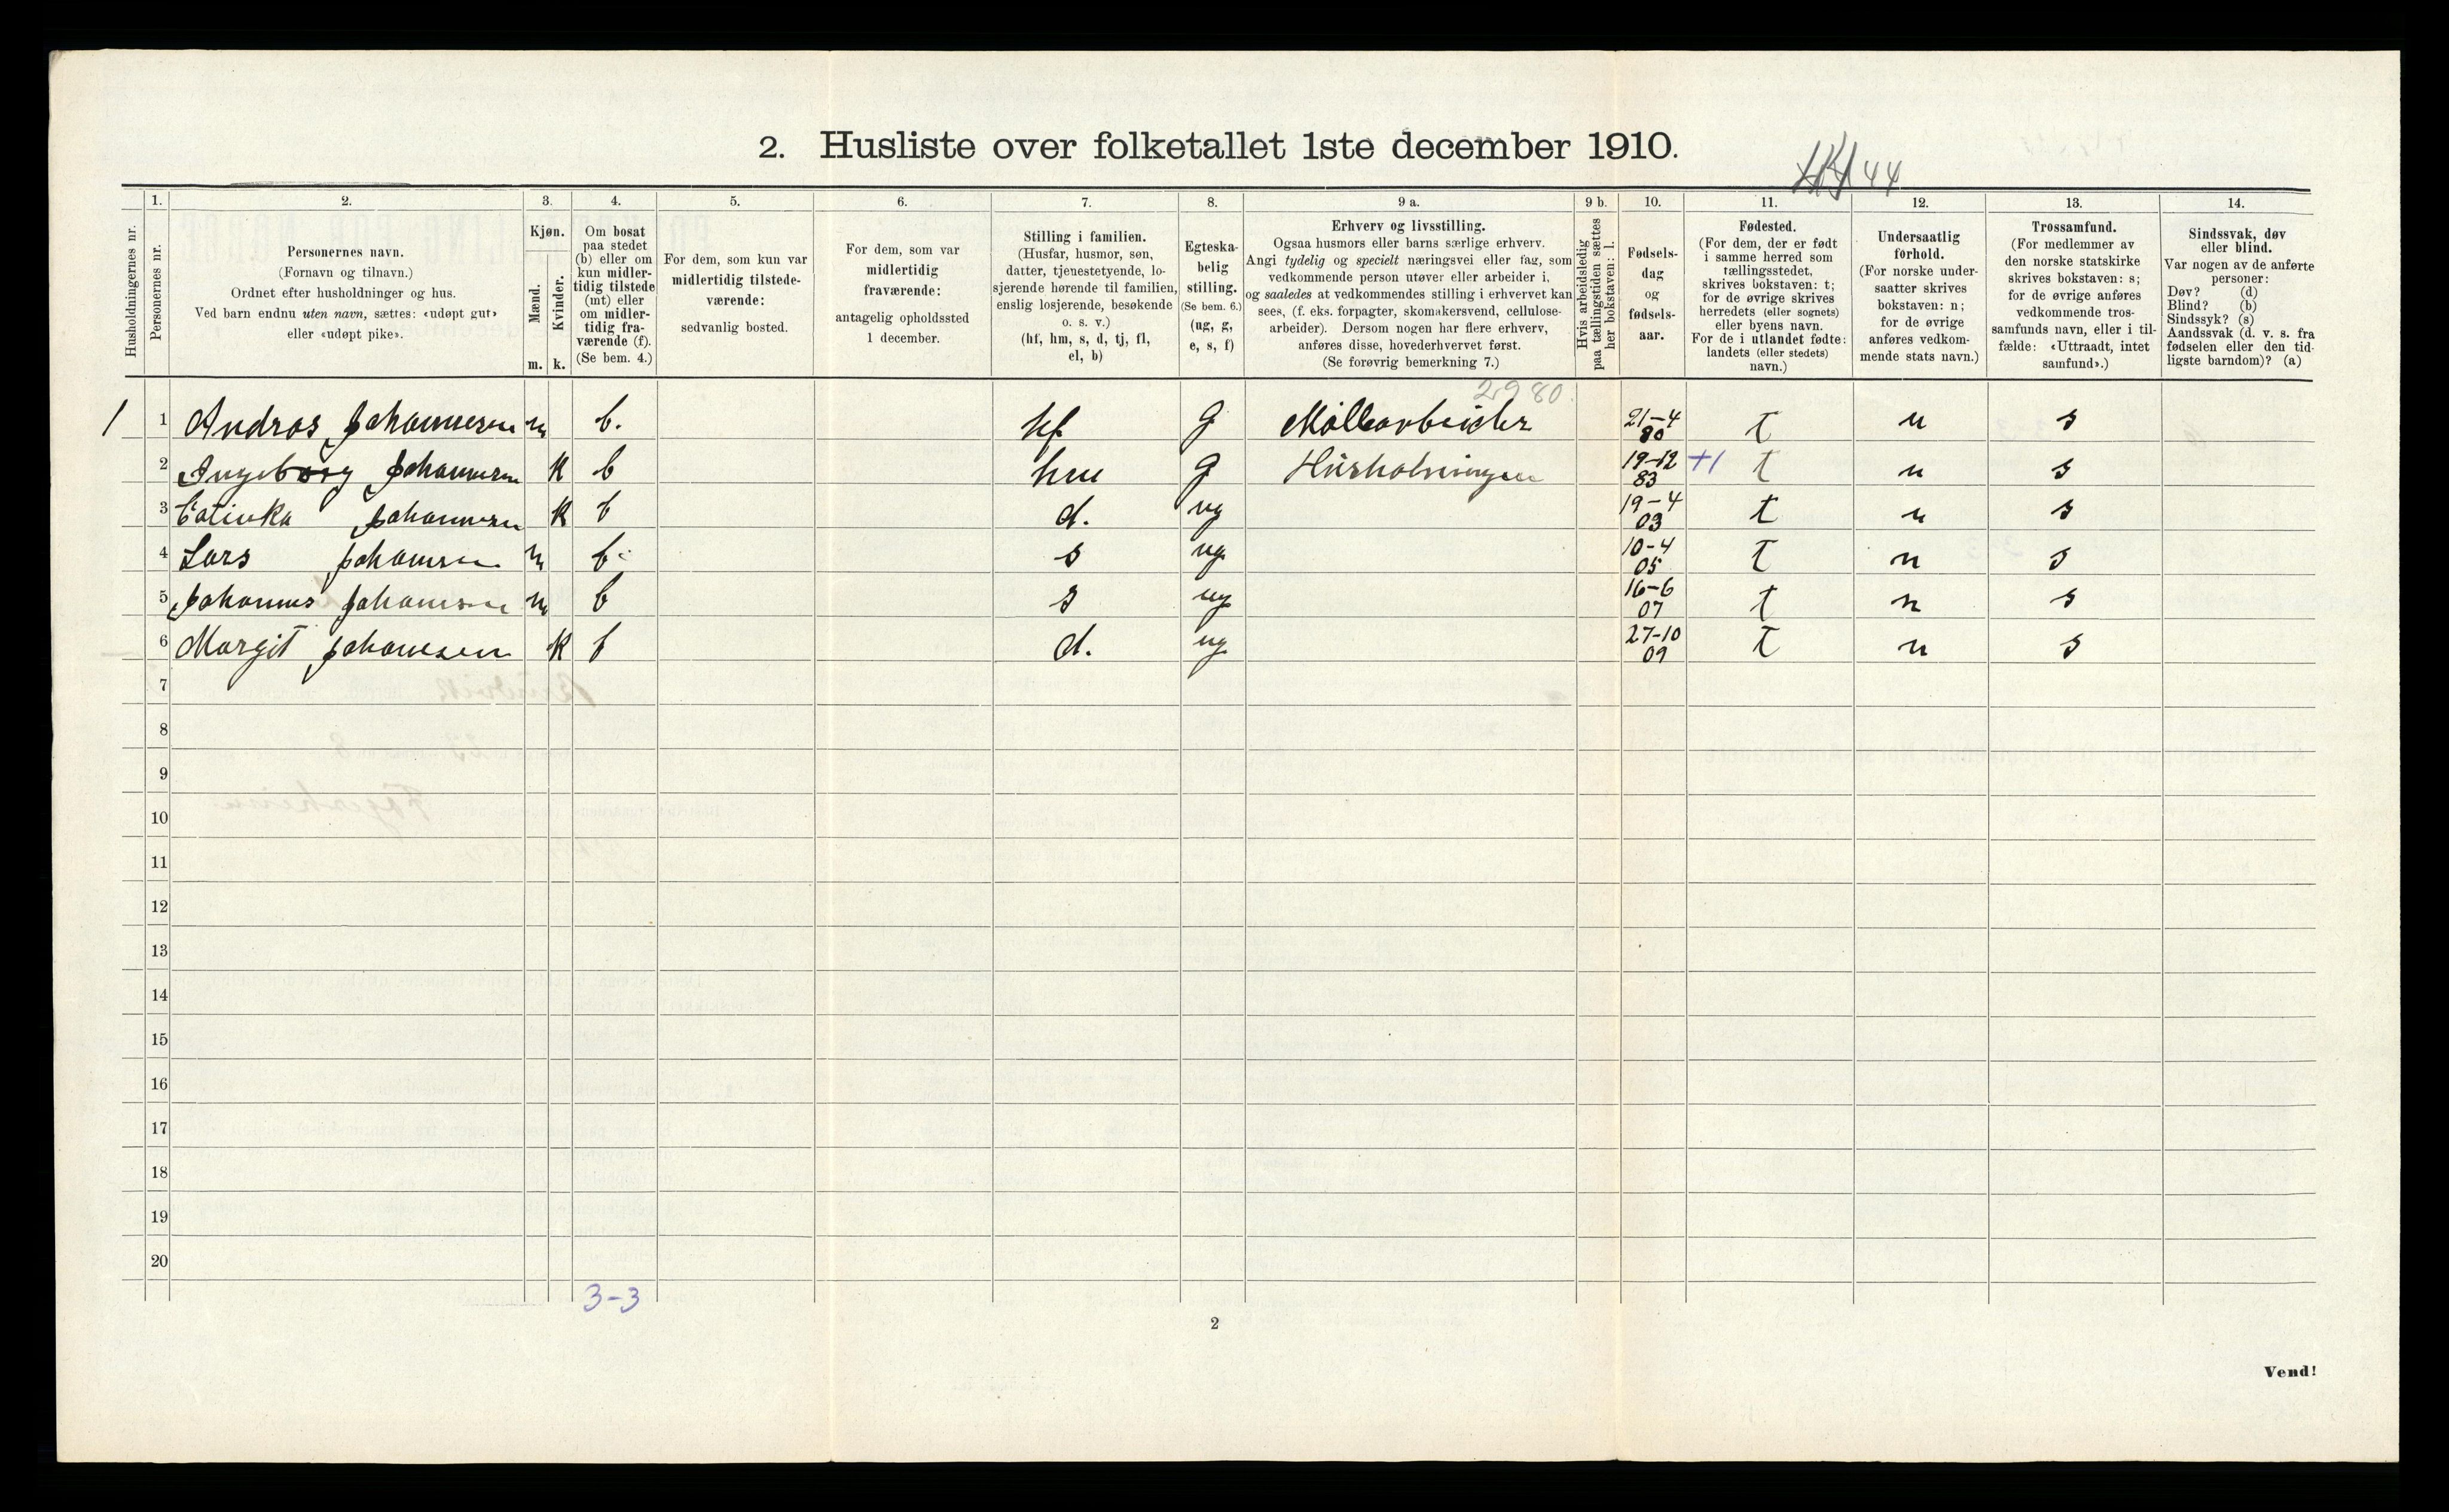 2. Husliste over folketallet 1ste december 1910.
44
Husholdningernes nr.
1. Personernes nr.
2. Personernes navn.
(Fornavn og tilnavn.)
Ordnet efter husholdninger og hus.
Ved barn endnu uten navn, sættes: «udøpt gut»
eller «udøpt pike».
3. Kjøn.
Mænd. m.
Kvinder. k.
4. Om bosat
paa stedet
(b) eller om
kun midler-
tidig tilstede
(mt) eller
om midler-
tidig fra-
værende (f).
(Se bem. 4.)
5. For dem, som kun var
midlertidig tilstede-
værende:
sedvanlig bosted.
6. For dem, som var
midlertidig
fraværende:
antagelig opholdssted
1 december.
7. Stilling i familien.
(Husfar, husmor, søn,
datter, tjenestetyende, lo-
sjerende hørende til familien,
enslig losjerende, besøkende
o. s. v.)
(hf, hm, s, d, tj, fl,
el, b)
8. Egteska-
belig
stilling.
(Se bem. 6.)
(ug, g,
e, s, f)
9 a. Erhverv og livsstilling.
Ogsaa husmors eller barns særlige erhverv.
Angi tydelig og specielt næringsvei eller fag, som
vedkommende person utøver eller arbeider i,
og saaledes at vedkommendes stilling i erhvervet kan
sees, (f. eks. forpagter, skomakersvend, cellulose-
arbeider). Dersom nogen har flere erhverv,
anføres disse, hovederhvervet først.
(Se forøvrig bemerkning 7.)
9 b. Hvis arbeidsledig
paa tællingstiden sættes
her bokstaven: l.
10. Fødsels-
dag
og
fødsels-
aar.
11. Fødested.
(For dem, der er født
i samme herred som
tællingsstedet,
skrives bokstaven: t;
for de øvrige skrives
herredets (eller sognets)
eller byens navn.
For de i utlandet fødte:
landets (eller stedets)
navn.)
12. Undersaatlig
forhold.
(For norske under-
saatter skrives
bokstaven: n;
for de øvrige
anføres vedkom-
mende stats navn.)
13. Trossamfund.
(For medlemmer av
den norske statskirke
skrives bokstaven: s;
for de øvrige anføres
vedkommende tros-
samfunds navn, eller i til-
fælde: «Uttraadt, intet
samfund».)
14. Sindssvak, døv
eller blind.
Var nogen av de anførte
personer:
Døv? (d)
Blind? (b)
Sindssyk? (s)
Aandssvak (d. v. s. fra
fødselen eller den tid-
ligste barndom)? (a)
2980.
1 1 Andras Johannesen m b. hf g Møllearbeider 21-4 80 t n s
2 Ingeborg Johannesen k b hm g Husholningen 19-12 83 +1 t n s
3 Catinka Johannesen k b d. ug 19-4 03 t n s
4 Lars Johansen m b s ug 10-4 05 t n s
5 Johannes Johansen m b s ug 16-6 07 t n s
6 Margit Johanesen k b d. ug 27-10 09 t n s
7
8
9
10
11
12
13
14
15
16
17
18
19
20
3-3
2
Vend!